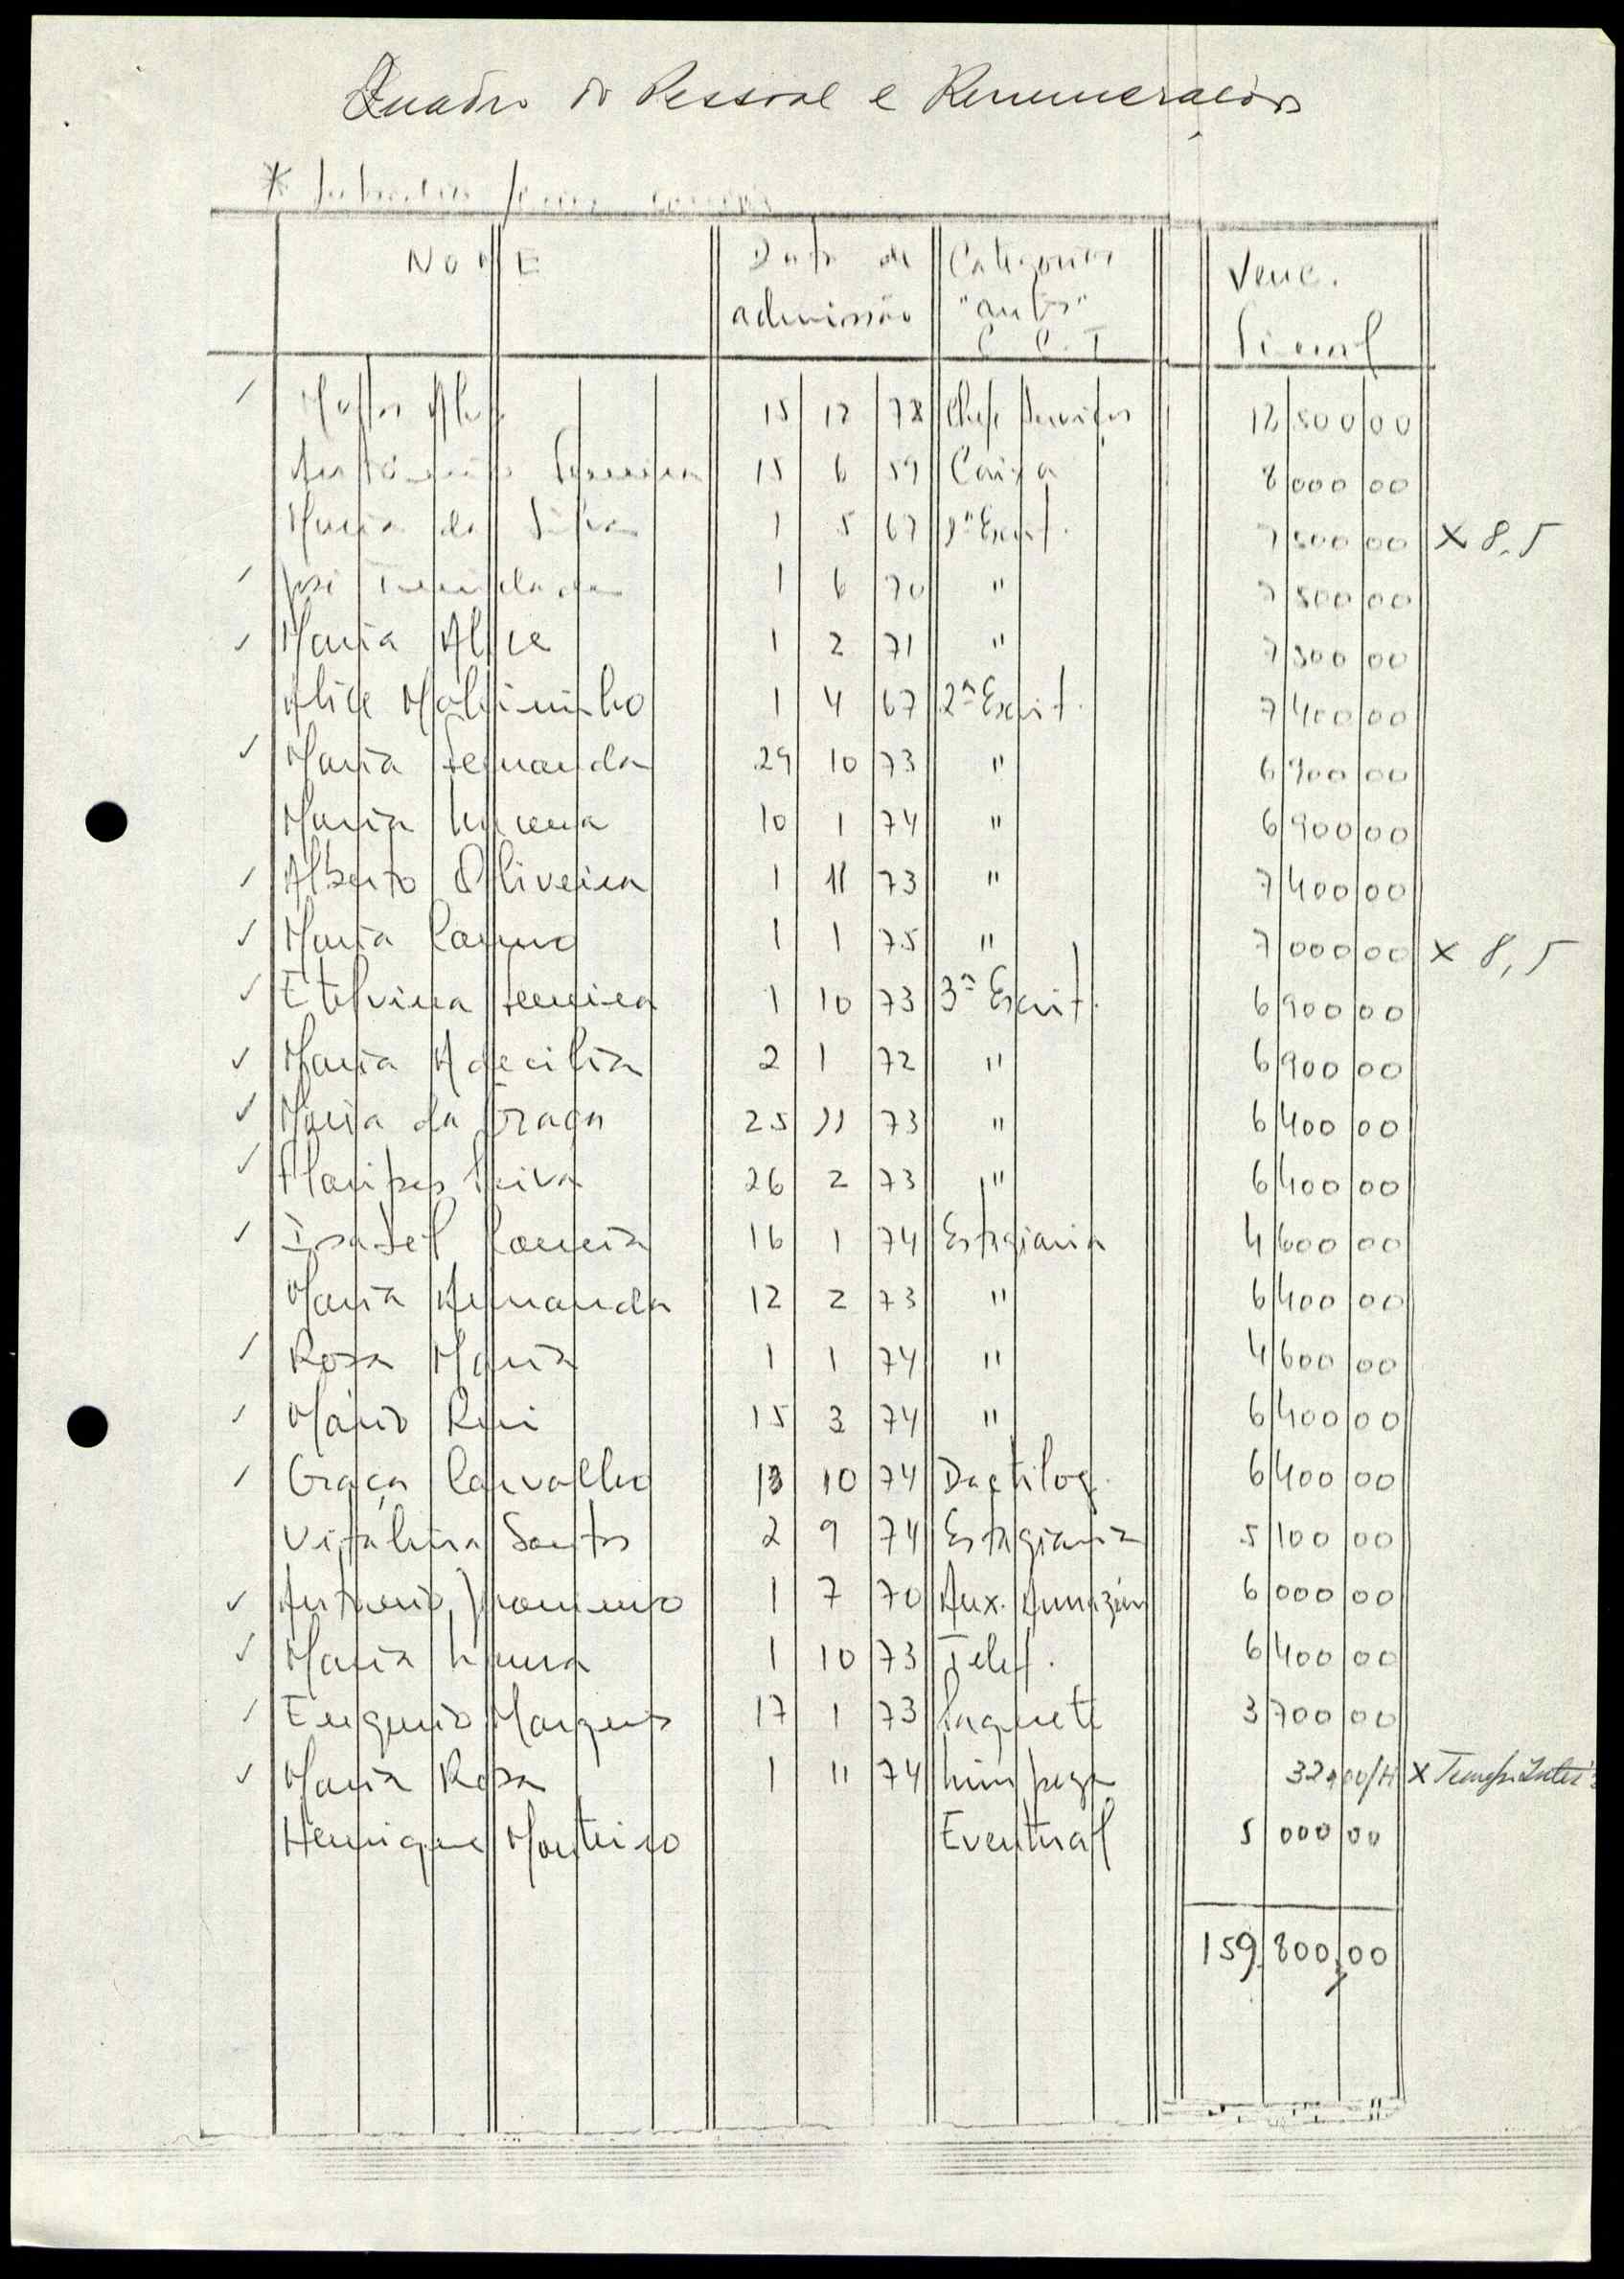 Quadro do Pessoal e Remunerações
NOME Data de Categorias Venc.
admissão "antes"
C. C. T
✓ 15 12 78 Chefe Serviços 12 500 00
Ferreira 15 6 59 Caixa 8 000 00
Maria da Silva 1 5 67 1º Escrit. 7 500 00 X 8,5
✓ José Trindade 1 6 70 " 7 500 00
✓ Maria Alice 1 2 71 " 7 500 00
Alice 1 4 67 2ª Escrit. 7 400 00
✓ Maria Fernanda 29 10 73 " 6 900 00
Maria 10 1 74 " 6 900 00
✓ Alberto Oliveira 1 11 73 " 7 400 00
✓ Maria Carmo 1 1 75 " 7 000 00 X 8,5
✓ Etelvina Ferreira 1 10 73 3ª Escrit. 6 900 00
✓ Maria 2 1 72 " 6 900 00
✓ Maria da Graça 25 11 73 " 6 400 00
✓ 26 2 73 " 6 400 00
✓ Isabel Correia 16 1 74 Estagiaria 4 600 00
Maria Armanda 12 2 73 " 6 400 00
✓ Rosa Maria 1 1 74 " 4 600 00
✓ Mário Rui 15 3 74 " 6 400 00
✓ Graça Carvalho 13 10 74 Dactilog. 6 400 00
Vitalina Santos 2 9 74 Estagiaria 5 100 00
✓ António 1 7 70 Aux. Armazém 6 000 00
✓ Maria 1 10 73 Telef. 6 400 00
✓ Eugenio Marques 17 1 73 Paquete 3 700 00
✓ Maria Rosa 1 11 74 Limpeza 32,00/H X
Henrique Monteiro Eventual 5 000 00
159.800,00